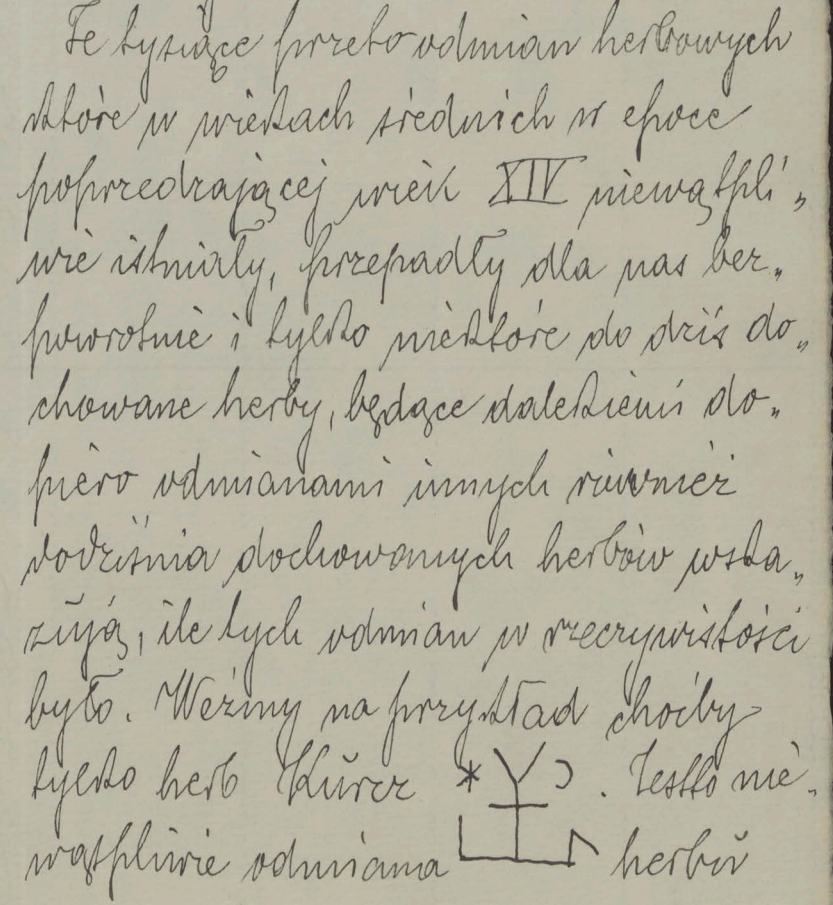 Te tysiące przeto odmian herbowych
które w wiekach średnich w epoce
poprzedzającej wiek XIV niewątpli„
wie istniały, przepadły dla nas bez„
powrotnie i tylko niektóre do dziś do„
chowane herby, będące dalekiemi do„
piero odmianami innych również
dodziśnia dochowanych herbów wska„
zują, ile tych odmian w rzeczywistości
było. Weźmy na przykład choćby
tylko herb Kurcz . Jestto nie„
wątpliwie odmiana herbu